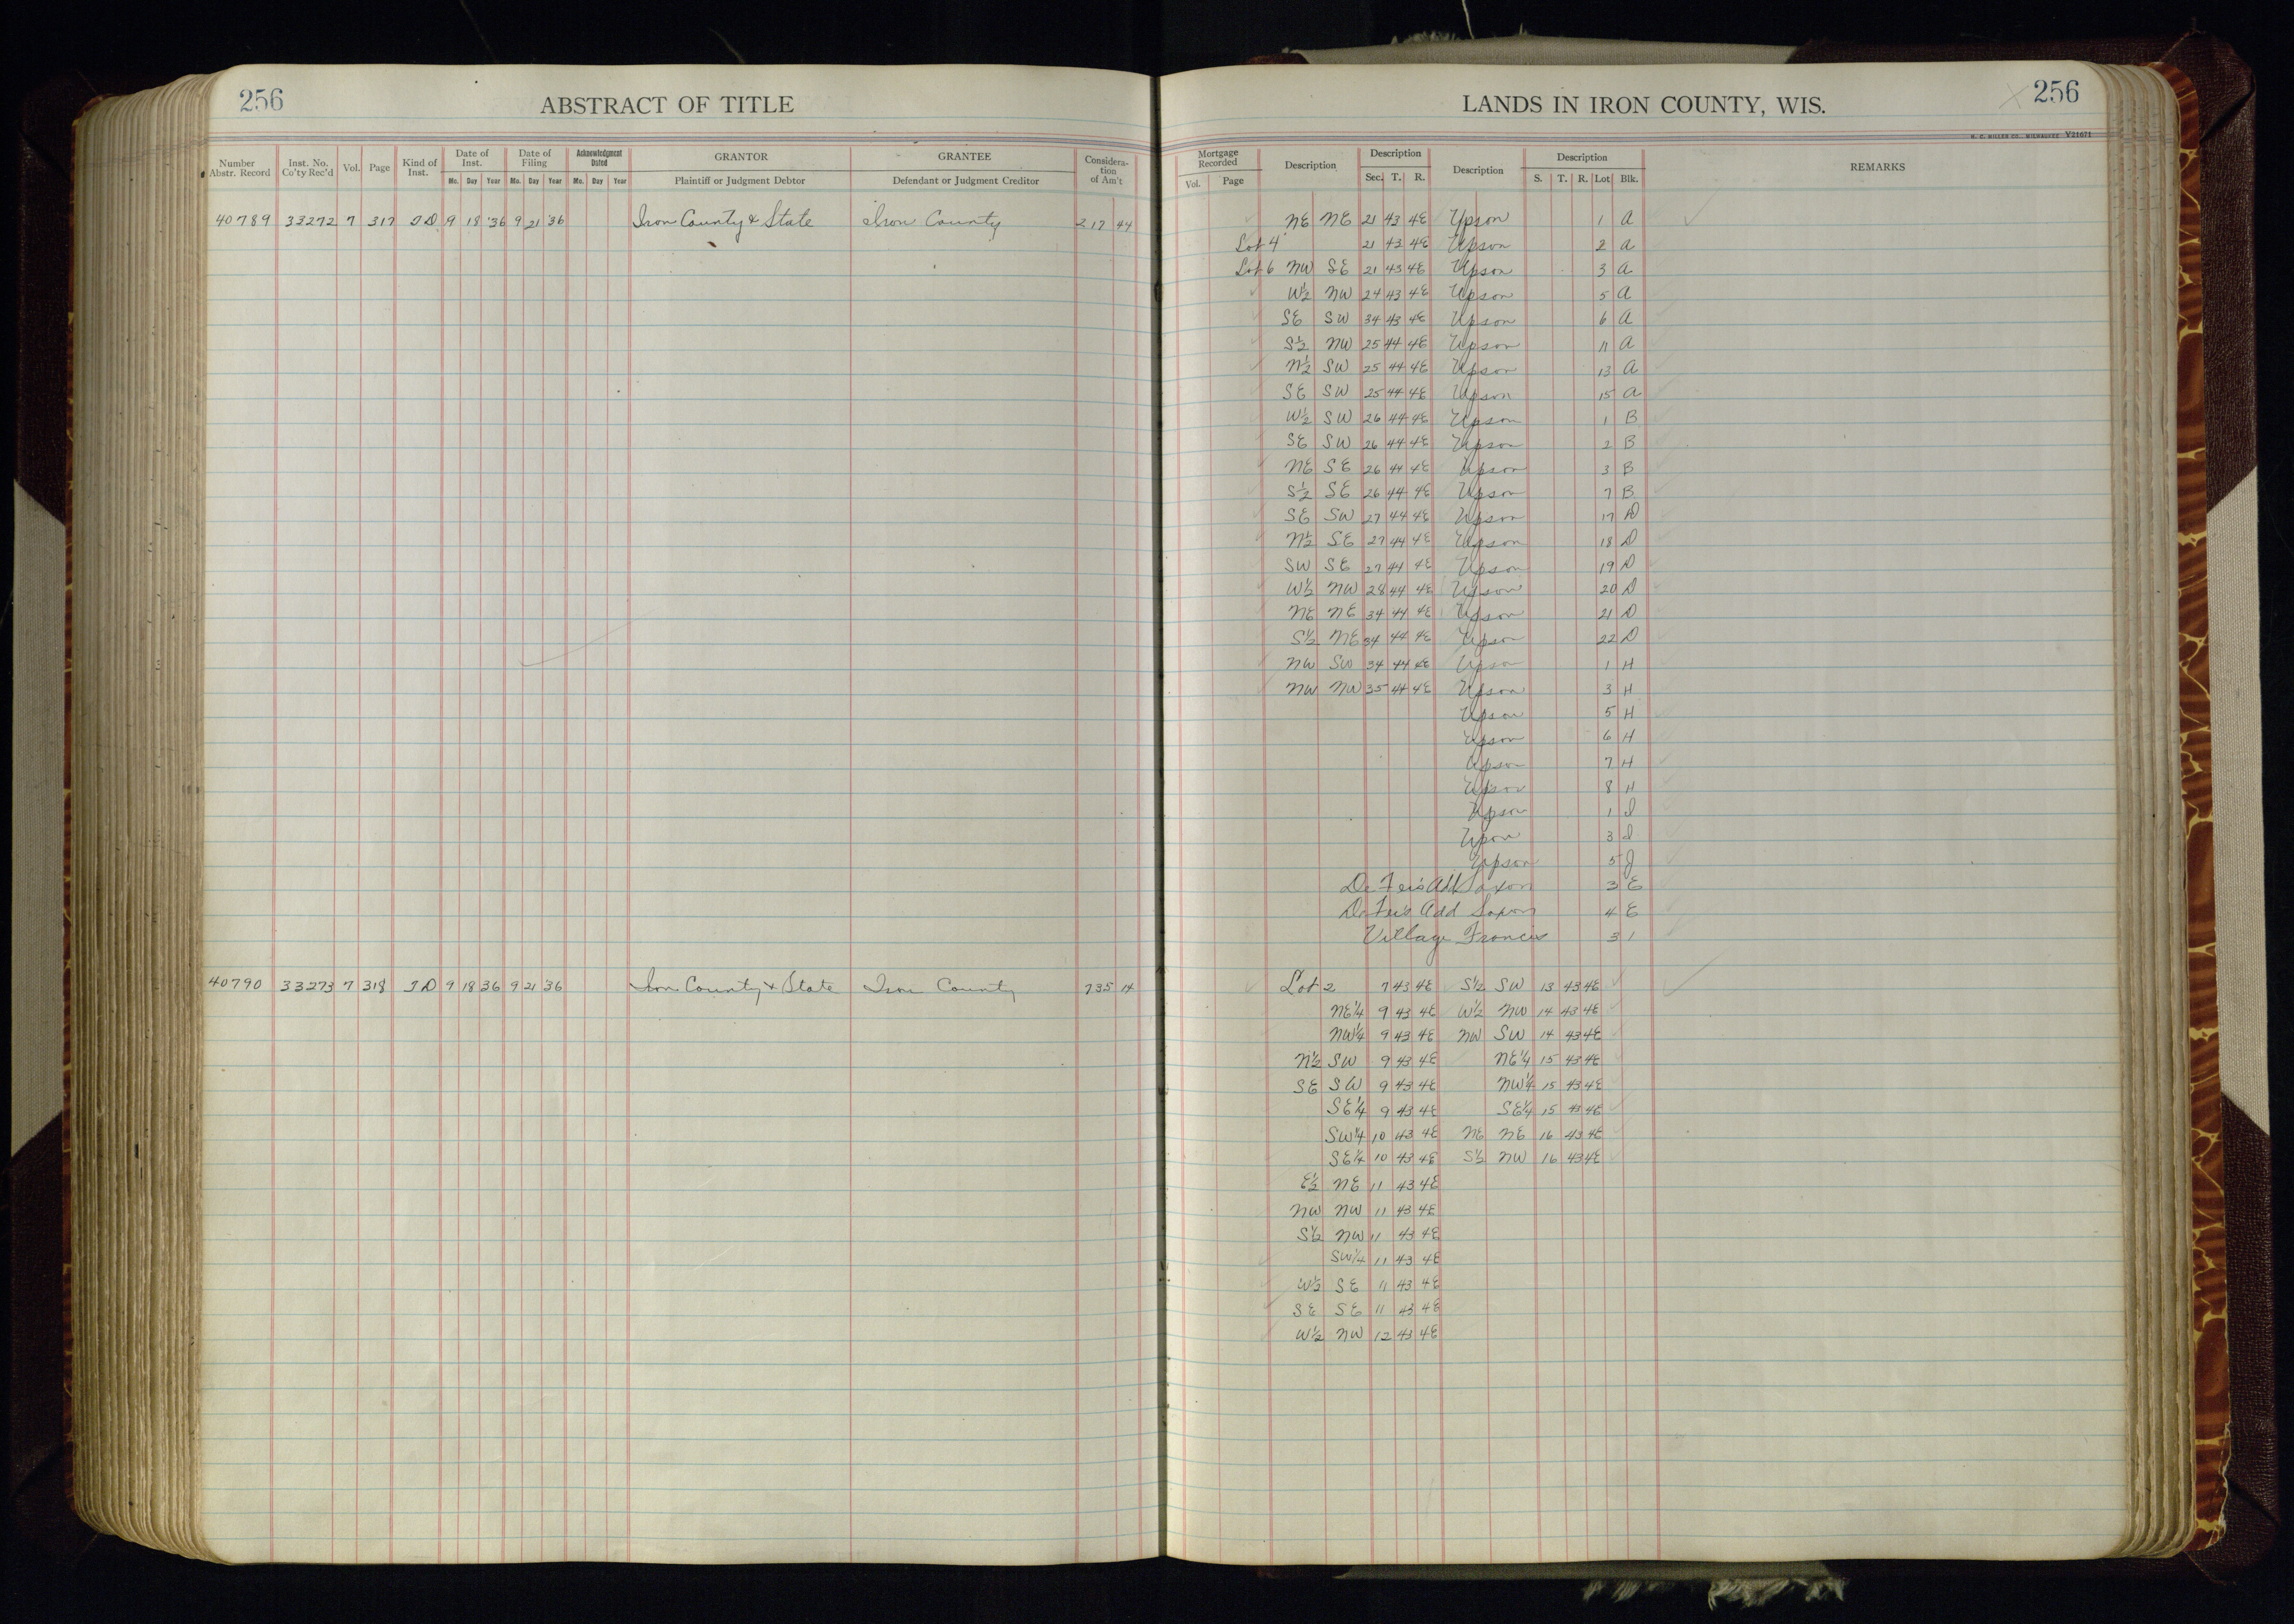 256
ABSTRACT OF TITLE
LANDS IN IRON COUNTY, WIS.
256
H. C. MILLER CO., MILWAUKEE Y21671
Number Abstr. Record | Inst. No. Co'ty Rec'd | Vol. | Page | Kind of Inst. | Date of Inst. Mo. Day Year | Date of Filing Mo. Day Year | Acknowledgment Dated Mo. Day Year | GRANTOR Plaintiff or Judgment Debtor | GRANTEE Defendant or Judgment Creditor | Considera-tion of Am't
Mortgage Recorded Vol. Page | Description | Description Sec. T. R. | Description | Description S. T. R. Lot Blk. | REMARKS
40789 33272 7 317 T D 9 18 '36 9 21 '36 Iron County & State Iron County 217 44 NE NE 21 43 4E Upson 1 A
Lot 4 21 43 4E Upson 2 A
Lot 6 NW SE 21 43 4E Upson 3 A
W½ NW 24 43 4E Upson 5 A
SE SW 34 43 4E Upson 6 A
S½ NW 25 44 4E Upson 11 A
N½ SW 25 44 4E Upson 13 A
SE SW 25 44 4E Upson 15 A
W½ SW 26 44 4E Upson 1 B
SE SW 26 44 4E Upson 2 B
NE SE 26 44 4E Upson 3 B
S½ SE 26 44 4E Upson 7 B
SE SW 27 44 4E Upson 17 D
N½ SE 27 44 4E Upson 18 D
SW SE 27 44 4E Upson 19 D
W½ NW 28 44 4E Upson 20 D
NE NE 34 44 4E Upson 21 D
S½ NE 34 44 4E Upson 22 D
NW SW 34 44 4E Upson 1 H
NW NW 35 44 4E Upson 3 H
Upson 5 H
Upson 6 H
Upson 7 H
Upson 8 H
Upson 1 I
Upson 3 I
Upson 5 J
De Fer's Add Saxon 3 E
De Fer's Add Saxon 4 E
Village Francis 3 1
40790 33273 7 318 T D 9 18 36 9 21 '36 Iron County & State Iron County 735 14 Lot 2 7 43 4E S½ SW 13 43 4E
NE¼ 9 43 4E W½ NW 14 43 4E
NW¼ 9 43 4E NW SW 14 43 4E
N½ SW 9 43 4E NE¼ 15 43 4E
SE SW 9 43 4E NW¼ 15 43 4E
SE¼ 9 43 4E SE¼ 15 43 4E
SW¼ 10 43 4E NE NE 16 43 4E
SE¼ 10 43 4E S½ NW 16 43 4E
E½ NE 11 43 4E
NW NW 11 43 4E
S½ NW 11 43 4E
SW¼ 11 43 4E
W½ SE 11 43 4E
SE SE 11 43 4E
W½ NW 12 43 4E